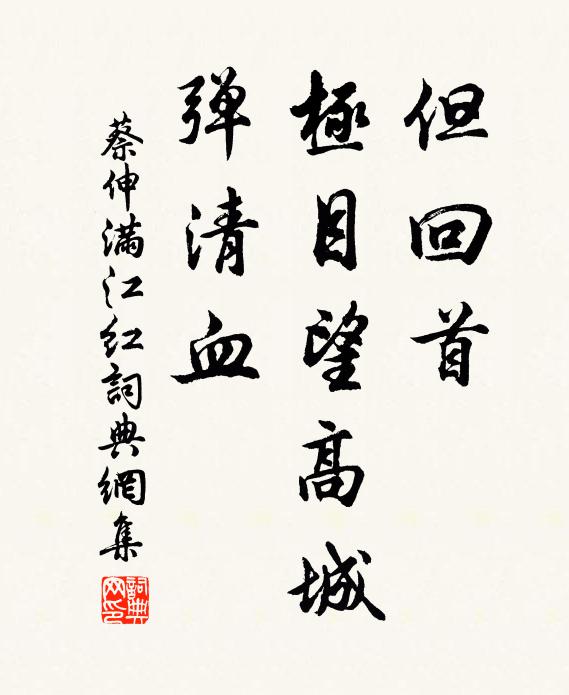 但回首
極目望高城
弹清血
蔡伸满江红詞典網集
詞典网印